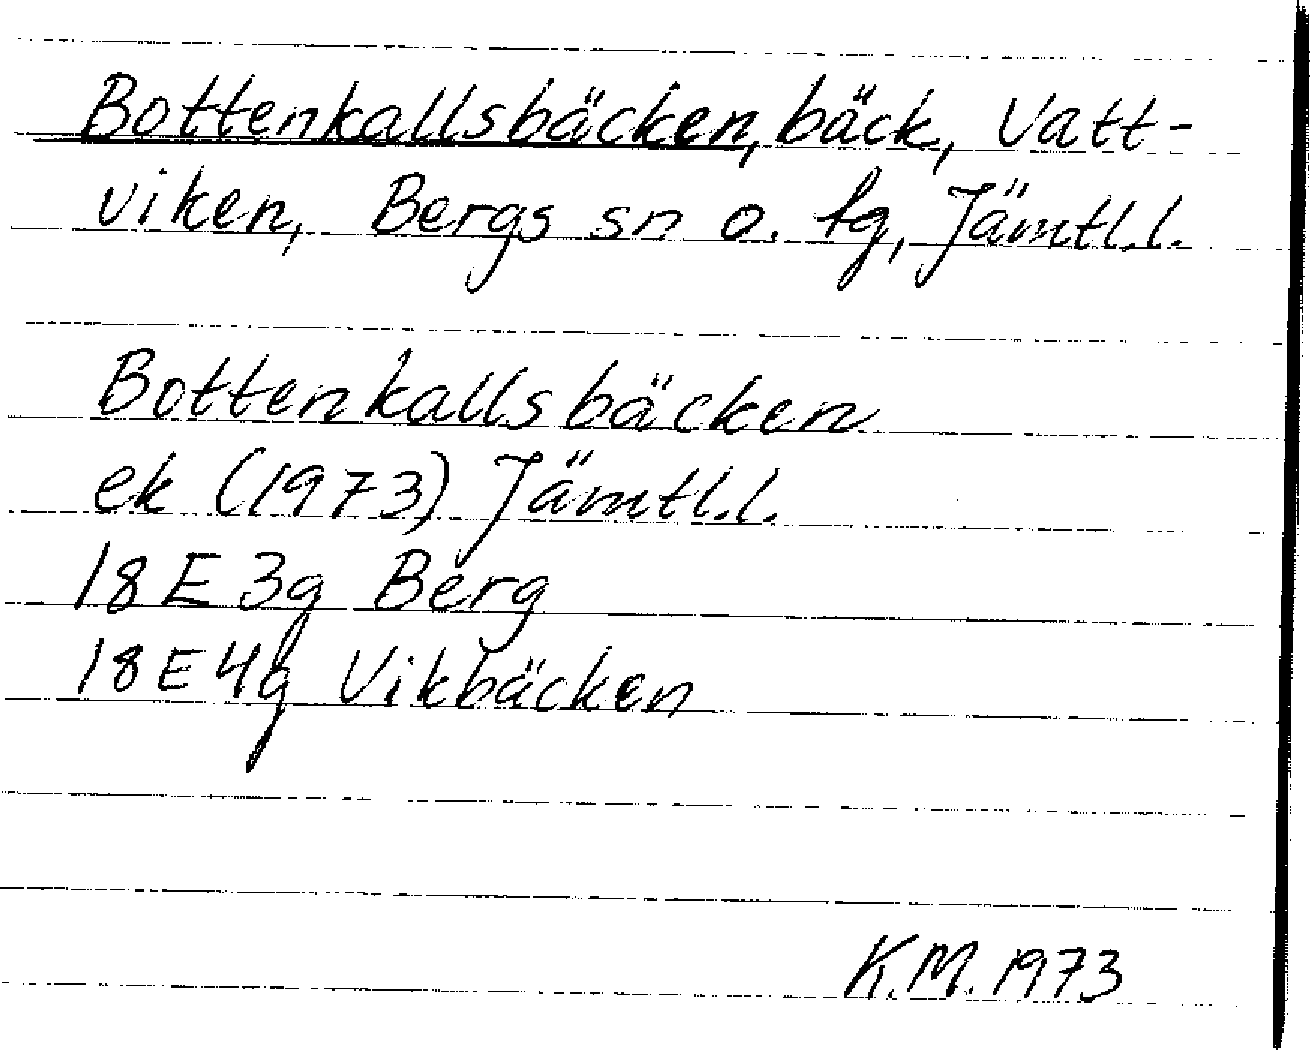 Bottenkallsbäcken, bäck, Vatt-
viken, Bergs sn o. tg, Jämtl.l.
Bottenkallsbäcken
ek (1973) Jämtl.l.
18 E 3g Berg
18 E 4g Vikbäcken
K.M. 1973